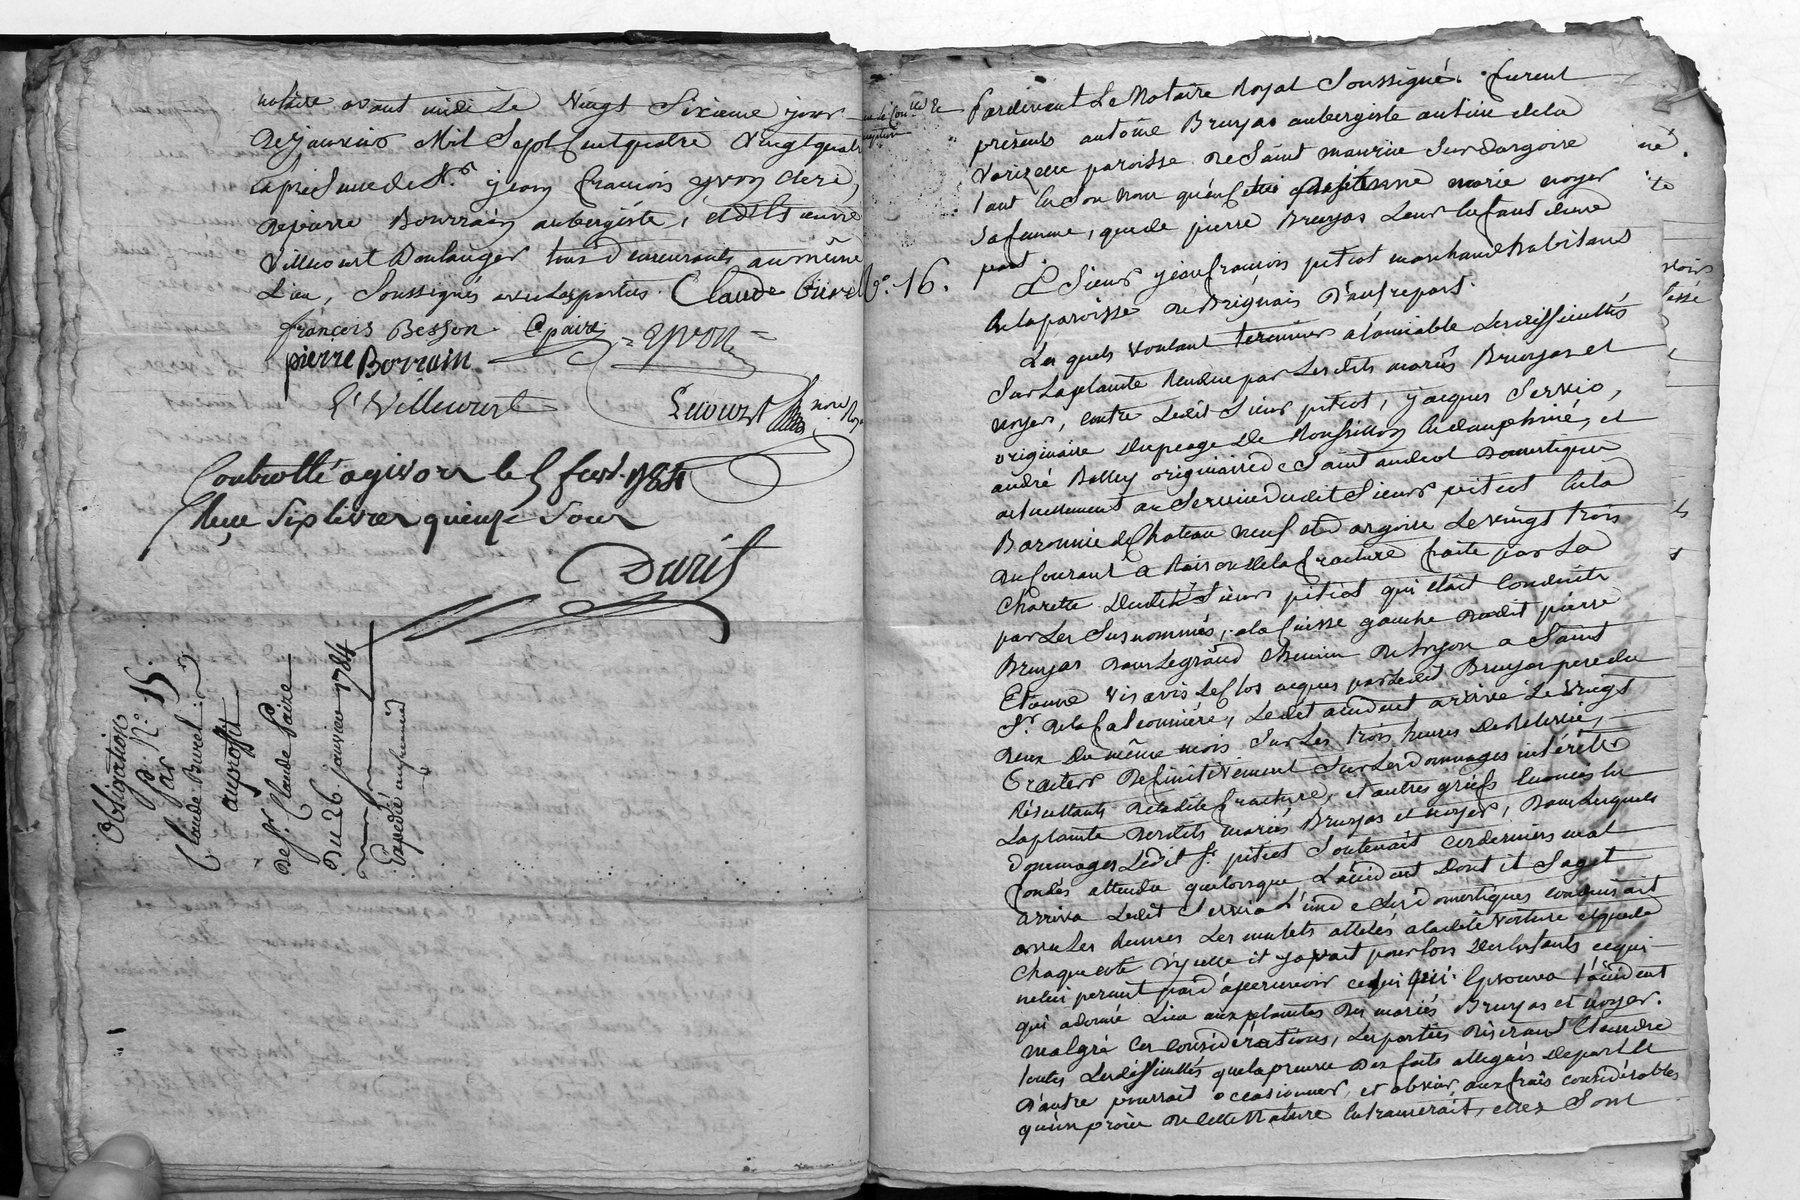 notaire avant midi Le Vingt Sixieme jour
de janvier Mil Sept Cent quatre Vingt quatre
en presence de Sr. jean francois yvon clerc,
de pierre Bourrain aubergiste, et de Sr
Villecourt Boulanger tous demeurants au même
Lieu, Soussignés avec les parties. Claude Buirel
françois Besson Cpaire yvon
pierre Borrain
Villecourt Lecourt
nore Roy
Controllé a givors le 5 fevr. 1784
Reçu Six livres quinze Sous
Duris
Obligation
N.o 15.
Par
Claude Buirel
au profit
de Sr. Claude Paire
Du 26. janvier 1784
Expedié
N.o 16.
Pardevant Le Notaire Royal Soussigné. furent
présents antoine Bruyas aubergiste au lieu de la
Varizelle paroisse de Saint maurice Sur dargoire
tant en Son nom qu'en celui d'Etiennne marie noyer
Sa femme, que de pierre Bruyas Leur Enfant d'une
part.
Et Sieur jean francois pitiot marchand habitant
en la paroisse de Brignais D'autre part.
Les quels voulant terminer a l'amiable Les difficultés
Sur La plainte Rendue par Les dits mariés Bruyas et
noyer, contre Ledit Sieur pitiot, jacques Servie,
originaire du peage de Roussillon En dauphiné, et
andré Balley originaire de Saint andeol Domestiques
actuellement au Service dudit Sieur pitiot En la
Baronnie de Chateau neuf et dargoire Le vingt trois
du Courant a Raison de la fracture faite par La
Charette dudit Sieur pitiot qui était Conduite
par Les Susnommés, a la Cuisse gauche dudit pierre
Bruyas dans Le grand Chemin de Lyon a Saint
Etienne vis avis Le Clos acquis par Ledit Bruyas pere du
Sr. de la faleonniére, Ledit accident arrivé Le vingt
deux du même mois Sur Les trois heures de Relevée,
Traiter Definitivement Sur Les Dommages intérêts
Résultants de ladite fracture, et autres griefs Enoncés En
La plainte desdits mariés Bruyas et noyer, Dans Lesquels
Dommages Ledit Sr. pitiot Soutenait Ces derniers mal
fondés attendu que lorsque L'accident Dont il S'agit
arriva Ledit Servie L'un de Ses domestiques conduisait
avec Les Rennes Les mulets attelés a ladite voiture et que de
Chaque coté d'icelle il y avait pour lors Des Enfants ce qui
ne lui permit pas d'apercevoir celui qui Eprouva l'accident
qui a donné Lieu aux plaintes des mariés Bruyas et noyer.
malgré Ces Considérations, Les parties Désirant Eteindre
toutes Les difficultés que la preuve Des faits allegués De part et
D'autre pourrait occasionner, et obvier aux frais considérables
qu'un procès de cette Nature Entrainerait, elles Sont